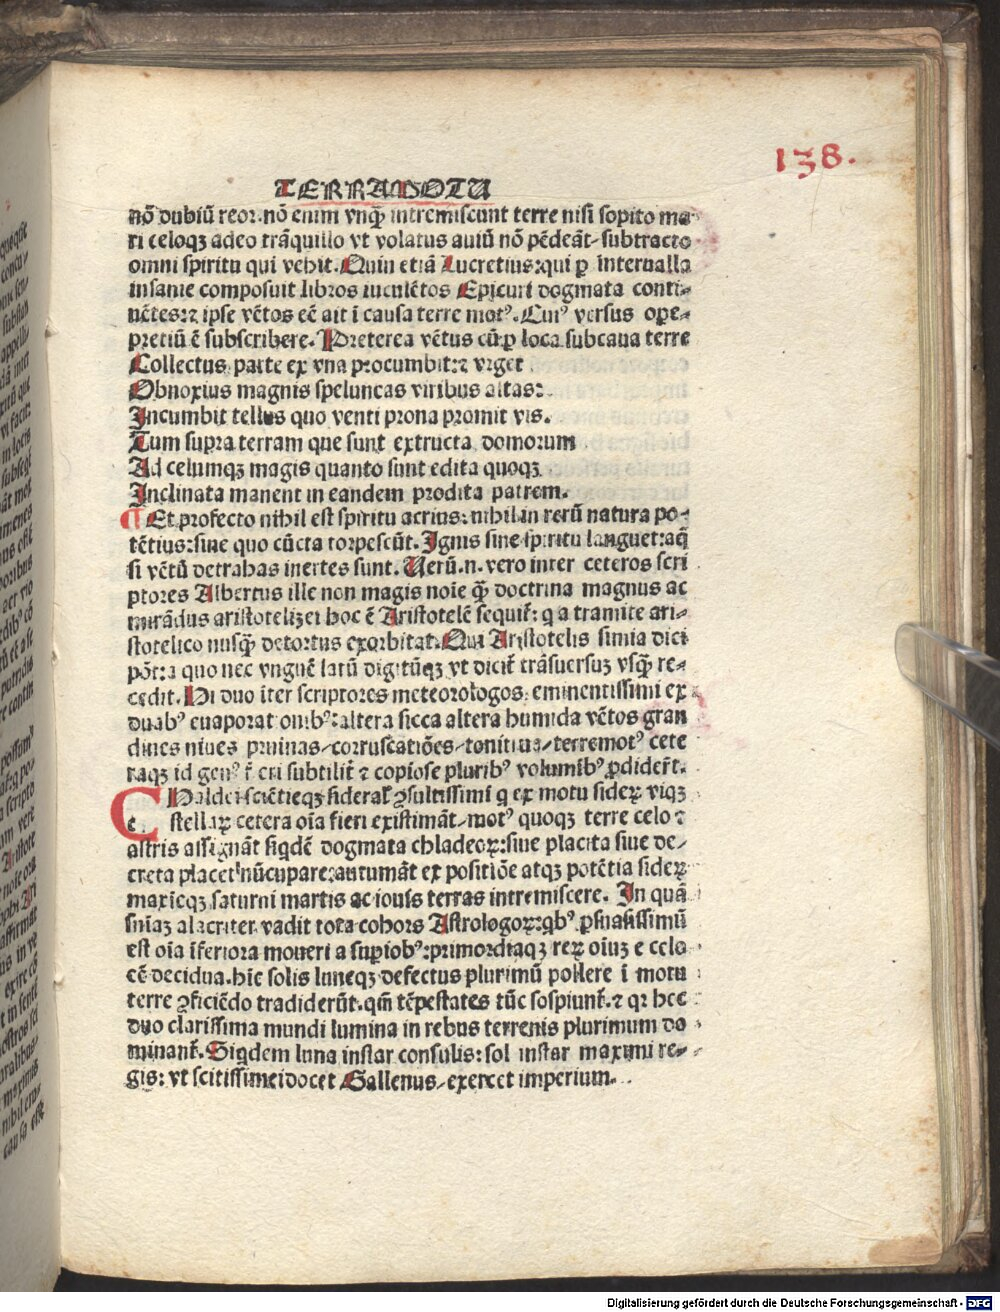 138.
TERRAMOTU
nō dubiū reor. nō enim vnq̄ꝫ intremiscunt terre nisi sopito ma-
ri celoqꝫ adeo trāquillo vt volatus auiū nō pēdeāt/ subtracto
omni spiritu qui vehit. Quin etiā Lucretius: qui ꝑ interualla
insanie composuit libros luculētos Epicuri dogmata conti-
nētes: ⁊ ipse vētos eē ait ī causa terre motꝰ. Cuiꝰ versus ope-
pretiū ē subscribere. Preterea vētus cū ꝑ loca subcaua terre
Collectus parte ex vna procumbit: ⁊ vrget
Obnoxius magnis speluncas viribus altas:
Incumbit tellus quo venti prona promit vis.
Tum supra terram que sunt extructa domorum
Ad celumqꝫ magis quanto sunt edita quoqꝫ
Inclinata manent in eandem prodita patrem.
¶ Et profecto nihil est spiritu acrius: nihil in rerū natura po-
tētius: sine quo cūcta torpescūt. Ignis sine spiritu languet: aq̄
si vētū detrahas inertes sunt. Uerū.n. vero inter ceteros scri
ptores Albertus ille non magis noīe q̄ꝫ doctrina magnus ac
mirādus aristotelizei hoc ē Aristotelē sequit᷑: q a tramite ari-
stotelico nusq̄ꝫ detortus exorbitat. Qui Aristotelis simia dici
pōt: a quo nec vnguē latū digitūqꝫ vt dicit᷑ trāsuersuꝫ vsq̄ꝫ re-
cedit. Hi duo īter scriptores meteorologos eminentissimi ex
duabꝰ euaporatōnibꝰ: altera sicca altera humida vētos gran
dines niues pruinas/ corruscatiōes/ tonitrua/ terremotꝰ cete
raqꝫ id genꝰ subtilit᷑ ⁊ copiose pluribꝰ voluminībꝰ ꝓdider̄t.
CHaldei scietieqꝫ sideral᷑ ꝯsultissimi q ex motu sideꝝ viqꝫ
e. stellaꝝ cetera oīa fieri existimāt/ motꝰ quoqꝫ terre celo ⁊
astris assignāt siqdē dogmata chladeoꝝ: siue placita siue de-
creta placet nūcupare: autumāt ex positiōe atqꝫ potētia sideꝝ
maxīeqꝫ saturni martis ac iouis terras intremiscere. In quā
sniaꝫ alacriter vadit tota cohors Astrologoꝝ: qbꝰ ꝑsuasissimū
est oīa īferiora moueri a supiobꝰ: primordiaqꝫ reꝝ oīuꝫ e celo
eē decidua. hīc solis luneqꝫ defectus plurimū pollere ī motu
terre ꝯficiēdo tradiderūt. qm̄ tēpestates tūc sospiunt᷑. ⁊ qr hec
duo clarissima mundi lumina in rebus terrenis plurimum do
minant᷑. Siqdem luna instar consulis: sol instar maximi re-
gis: vt scitissime docet Gallenus/ exercet imperium.
Digitalisierung gefördert durch die Deutsche Forschungsgemeinschaft - DFG